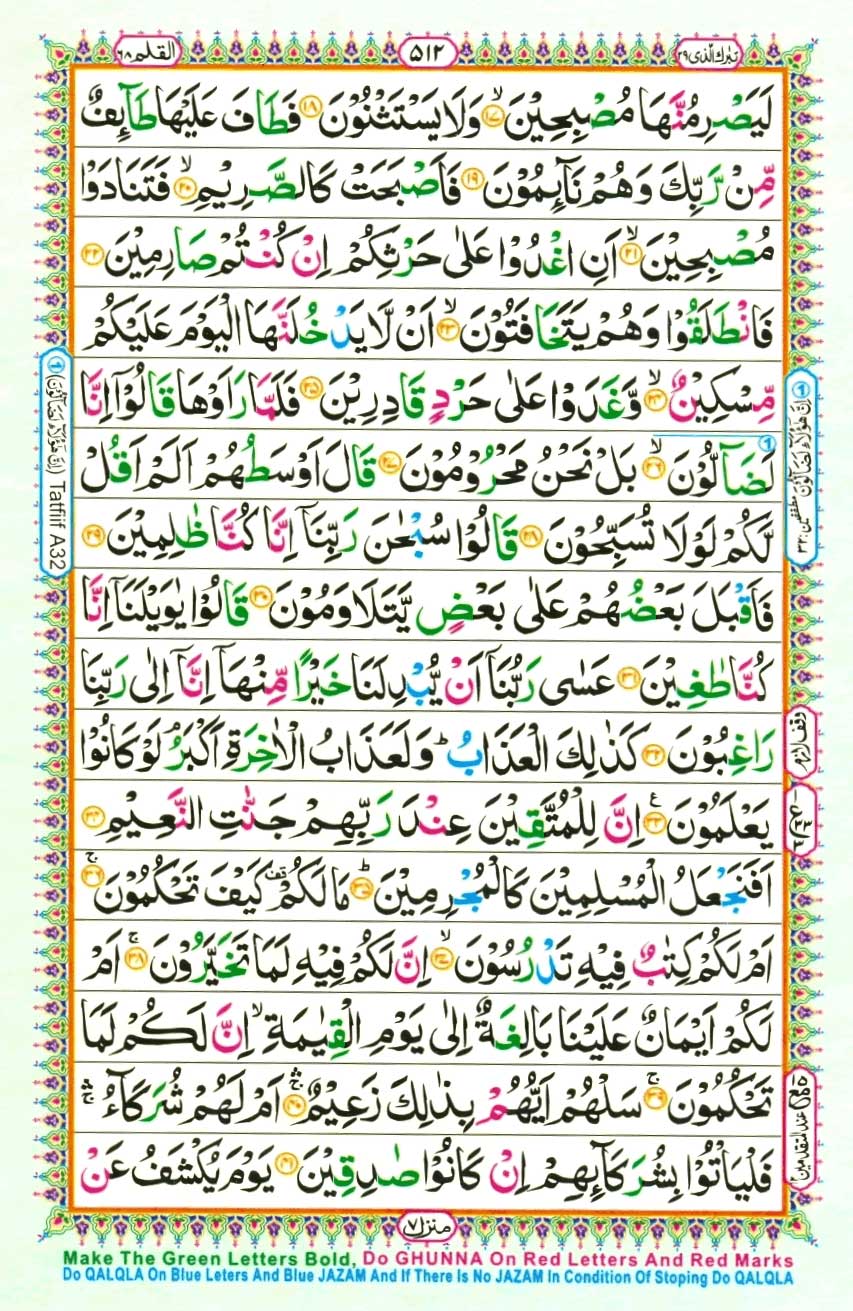 تبٰرك الّذی ۲۹
۵۱۲
القلم ۶۸
لَيَصْرِمُنَّهَا مُصْبِحِيْنَ ۙ‏﴿۱۷﴾ وَلَا يَسْتَثْنُوْنَ ﴿۱۸﴾ فَطَافَ عَلَيْهَا طَآئِفٌ
مِّنْ رَّبِّكَ وَهُمْ نَآئِمُوْنَ ﴿۱۹﴾ فَاَصْبَحَتْ كَالصَّرِيْمِ ۙ﴿۲۰﴾ فَتَنَادَوْا
مُصْبِحِيْنَ ۙ﴿۲۱﴾ اَنِ اغْدُوْا عَلٰى حَرْثِكُمْ اِنْ كُنْتُمْ صَارِمِيْنَ ﴿۲۲﴾
فَانْطَلَقُوْا وَهُمْ يَتَخَافَتُوْنَ ۙ﴿۲۳﴾ اَنْ لَّا يَدْخُلَنَّهَا الْيَوْمَ عَلَيْكُمْ
مِّسْكِيْنٌ ۙ﴿۲۴﴾ وَّغَدَوْا عَلٰى حَرْدٍ قَادِرِيْنَ ﴿۲۵﴾ فَلَمَّا رَاَوْهَا قَالُوْٓا اِنَّا
لَضَآلُّوْنَ ۙ﴿۲۶﴾ بَلْ نَحْنُ مَحْرُوْمُوْنَ ﴿۲۷﴾ قَالَ اَوْسَطُهُمْ اَلَمْ اَقُلْ
لَّكُمْ لَوْلَا تُسَبِّحُوْنَ ﴿۲۸﴾ قَالُوْا سُبْحٰنَ رَبِّنَآ اِنَّا كُنَّا ظٰلِمِيْنَ ﴿۲۹﴾
فَاَقْبَلَ بَعْضُهُمْ عَلٰى بَعْضٍ يَّتَلَاوَمُوْنَ ﴿۳۰﴾ قَالُوْا يٰوَيْلَنَآ اِنَّا
كُنَّا طٰغِيْنَ ﴿۳۱﴾ عَسٰى رَبُّنَآ اَنْ يُّبْدِلَنَا خَيْرًا مِّنْهَآ اِنَّآ اِلٰى رَبِّنَا
رَاغِبُوْنَ ﴿۳۲﴾ كَذٰلِكَ الْعَذَابُ ؕ وَلَعَذَابُ الْاٰخِرَةِ اَكْبَرُ لَوْ كَانُوْا
يَعْلَمُوْنَ ﴿۳۳﴾ ع اِنَّ لِلْمُتَّقِيْنَ عِنْدَ رَبِّهِمْ جَنّٰتِ النَّعِيْمِ ﴿۳۴﴾
اَفَنَجْعَلُ الْمُسْلِمِيْنَ كَالْمُجْرِمِيْنَ ؕ﴿۳۵﴾ مَا لَكُمْ قف كَيْفَ تَحْكُمُوْنَ ۚ﴿۳۶﴾
اَمْ لَكُمْ كِتٰبٌ فِيْهِ تَدْرُسُوْنَ ۙ﴿۳۷﴾ اِنَّ لَكُمْ فِيْهِ لَمَا تَخَيَّرُوْنَ ۚ﴿۳۸﴾ اَمْ
لَكُمْ اَيْمَانٌ عَلَيْنَا بَالِغَةٌ اِلٰى يَوْمِ الْقِيٰمَةِ ۙ اِنَّ لَكُمْ لَمَا
تَحْكُمُوْنَ ۚ﴿۳۹﴾ سَلْهُمْ اَيُّهُمْ بِذٰلِكَ زَعِيْمٌ ۛۚ﴿۴۰﴾ اَمْ لَهُمْ شُرَكَآءُ ۛۚ
فَلْيَاْتُوْا بِشُرَكَآئِهِمْ اِنْ كَانُوْا صٰدِقِيْنَ ﴿۴۱﴾ يَوْمَ يُكْشَفُ عَنْ
۱ اِنَّ هٰٓؤُلَآءِ لَضَآلُّوْنَ مطففین: ۳۲
وقف لازم
مع عند المتقدمین
۱ (اِنَّ هٰٓؤُلَآءِ لَضَآلُّوْنَ) Tatfiif A32
منزل ۷
Make The Green Letters Bold, Do GHUNNA On Red Letters And Red Marks
Do QALQLA On Blue Leters And Blue JAZAM And If There Is No JAZAM In Condition Of Stoping Do QALQLA